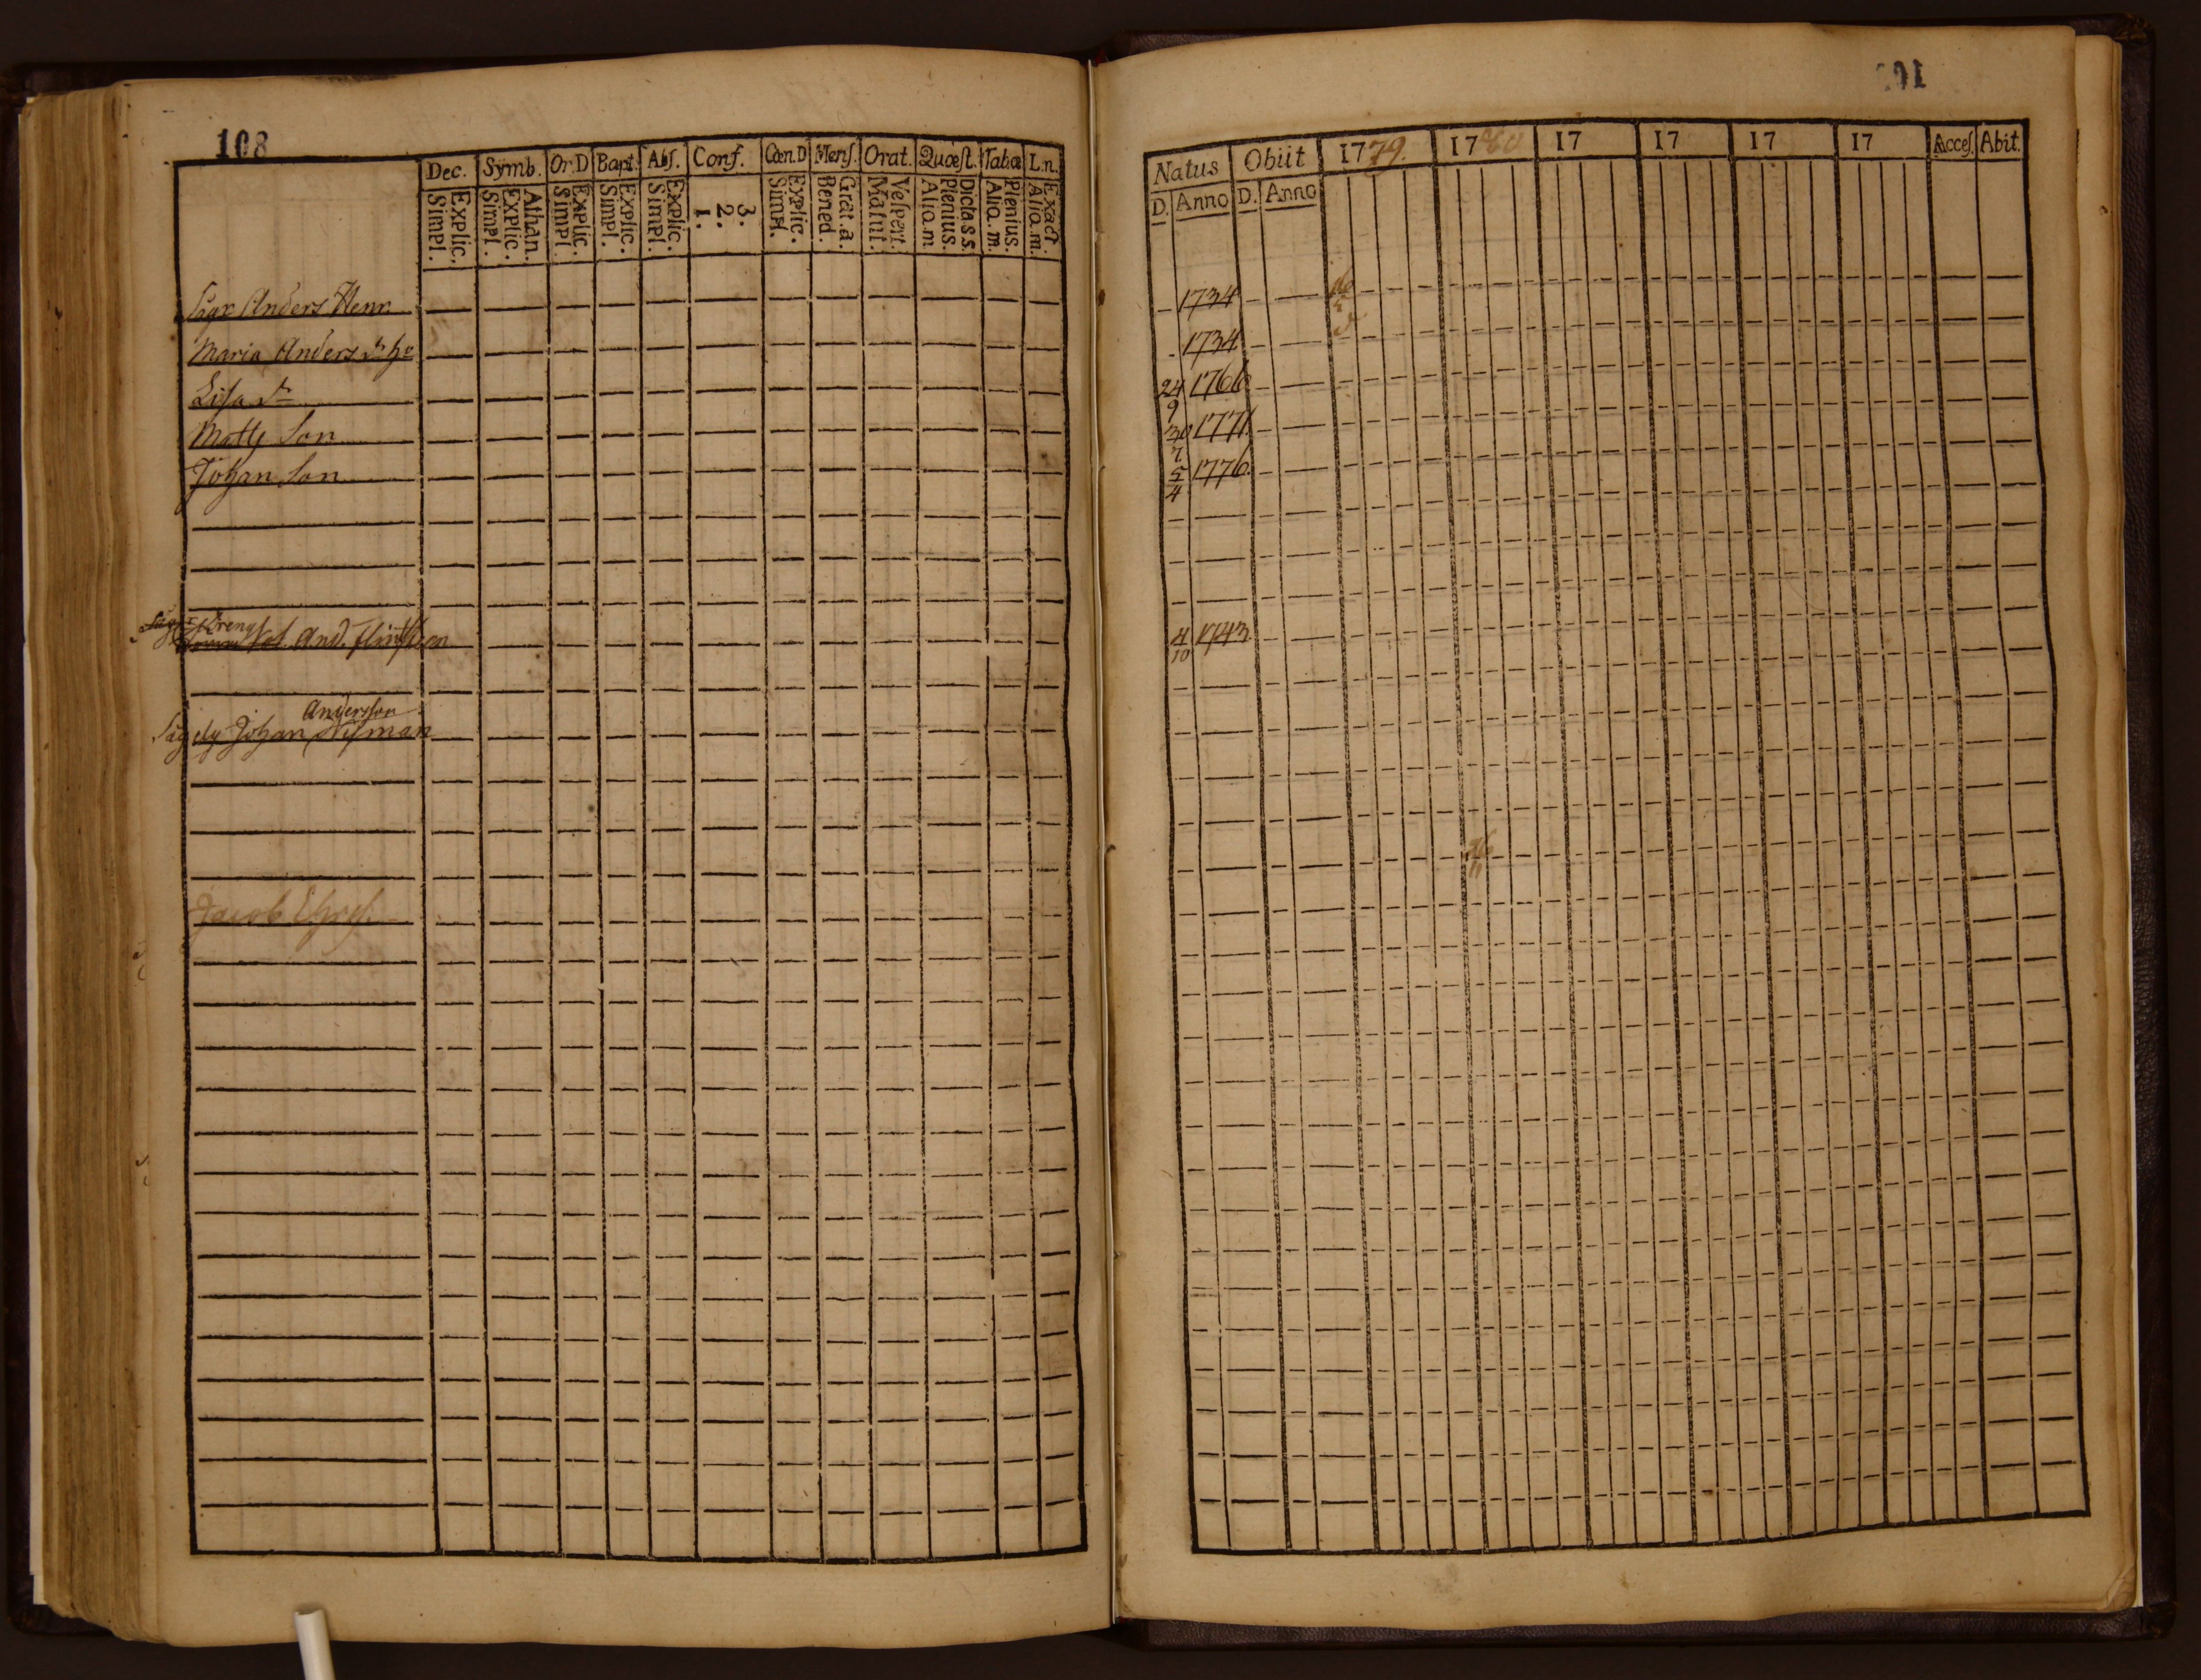 108
Dec. Symb. Or.D Bapt. Abſ. Conf. Cœn.D Menſ. Orat. Quœſt. Tabœ L.n.
Explic. Simpl. Athan. Explic. Simpl. Explic. Simpl. Explic. Simpl. Explic. Simpl. 3. 2. 1. Explic. Simpl. Grat.a. Bened. Veſpert. Matut. Dicta s s. Plenius. Alia.m Plenius. Alia.m. Exact. Alia.m.
Anders Henr.
Maria Anders dr
Lisa dr
Matts Son
Johan Son
And. Flinkſteen
Andersson
Johan Nyman
Jacob
Natus Obiit 1779. 1780 17 17 17 17 Acceſ. Abit.
D. Anno D. Anno
1734
1734
24 1766
9
30 1771
7
5 1776
4
4 1743
10